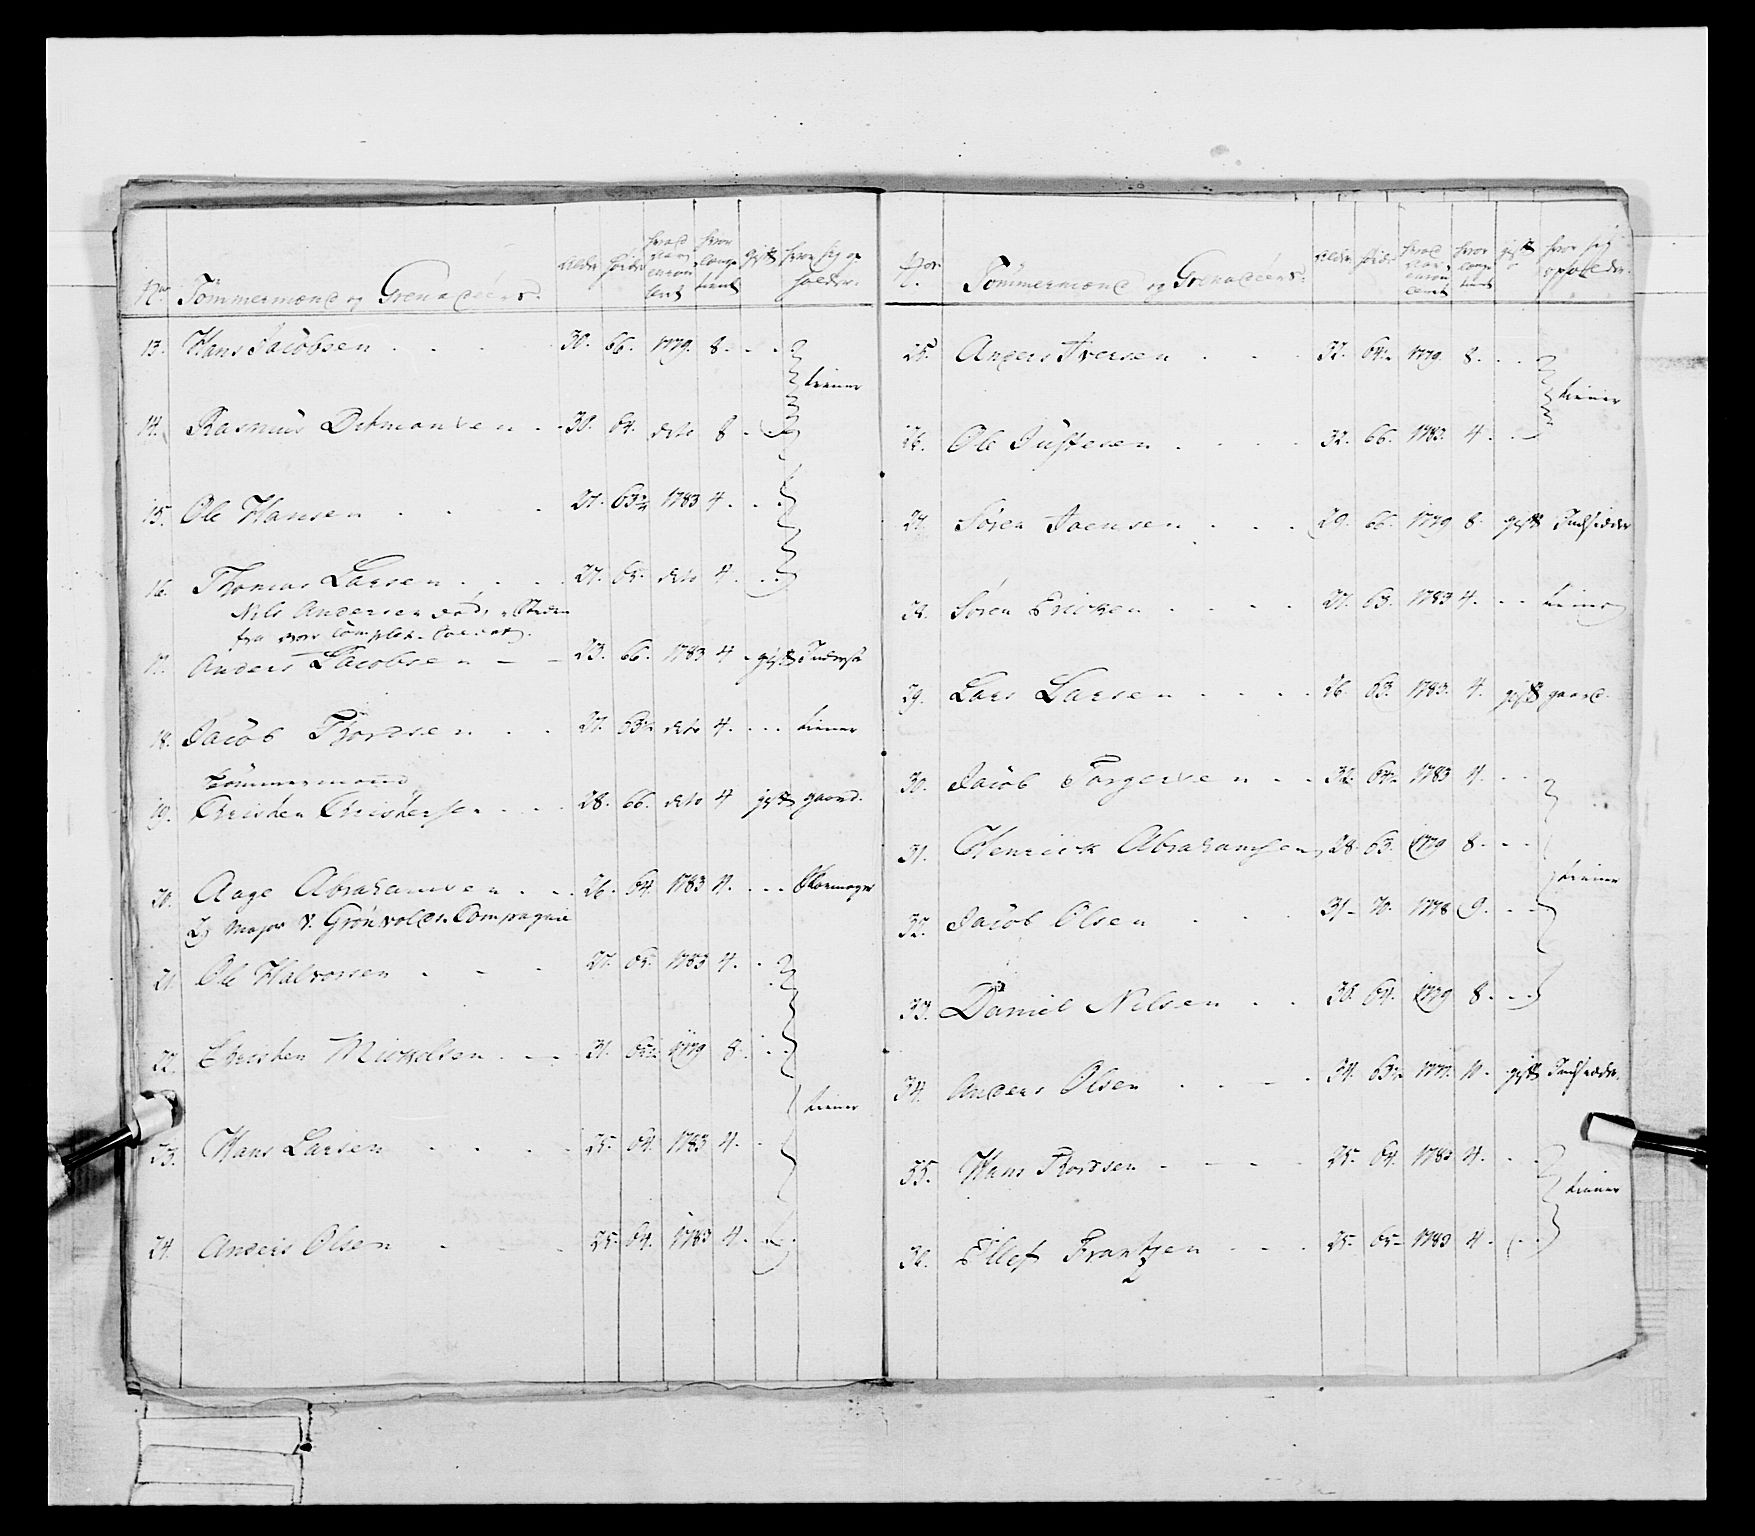 No Tömmermænd og Grenadéers. Alder höide hvad Aar enroulerit hvor længe tient gift hvor sig opholder.
13. Hans Jacobsen . . . 30. 66. 1779. 8. . .
tiener
14. Rasmus Ditmansen . . 30. 64. dito 8 .
15. Ole Hansen . . . . 27. 63½ 1783 4 . . .
16. Thomas Larsen . . . . 27. 65. dito 4. . .
Nils Andersen död, i Steden
fra
17. Anders Jacobsen — — 23. 66. 1783 4 . gift Inderst
18. Jacob Thordsen . . 27. 63½ dito 4 . . . . tiener
Tömmermand
19. Christen Christensen . . . 28. 66. dito 4 gift gaard.
20. Aage Abrahamsen . . . 26. 64. 1783 4. . . . Skoemager
Major V. Grönvolds Compagnie
21. Ole Halvorsen . - . 27. 65. 1783 4. .
22. Christen Mickelsen . — 31. 1779 8. . .
tiener
23. Hans Larsen . . . . 25. 64. 1783 4. .
24. Anders Olsen . . . 25. 64. 1783 4. .
No. Tömmermænd og Grenadéers. Alder höide hvad Aar enroulerit hvor længe tient gift hvor sig opholder.
25. Anders Iversen . . . 32. 64½ 1779 8. . .
tiener
26. Ole Justesen . . . . 32. 66. 1783. 4. . .
27. Sören Jaensen . . . 29. 66. 1779 8. gift Indsidder
28. Sören Ericksen . . . . 27. 63. 1783 4. . . tiener
29. Lars Larsen . . . . 26. 63. 1783. 4. gift gaard.
30. Jacob Torgersen . . 32. 64½ 1783 4. . .
31. Henrick Abrahamsen 28. 63. 1779 8. . . .
tiener
32. Jacob Olsen . . . 31. 70. 1778 9. . .
33. Daniel Nilsen . . 30. 64. 1779 8. . .
34. Anders Olsen . . . . 34. 63½ 1777. 10. gift Indsidder.
35. Hans Thordsen . - - . 25. 64. 1783 4. . .
tiener
36. Ellef Frantzen . . . 25. 65. 1783 4. . .